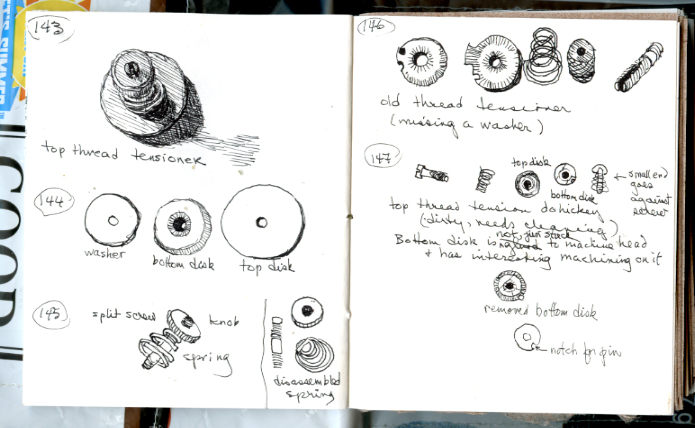 143
top thread tensioner
144
washer
bottom disk
top disk
145
split screw
knob
spring
disassembled
spring
146
old thread tensioner
(missing a washer)
147
top disk
bottom disk
small end
goes
against
top thread tension dohickey
(dirty, needs cleaning)
not, just stuck
Bottom disk is to machine head
+ has interesting machining on it
removed bottom disk
notch for pin
SUMMER
COOP